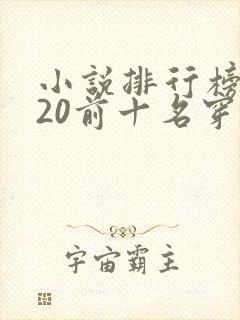 小說排行榜
20前十名穿
宇宙霸主